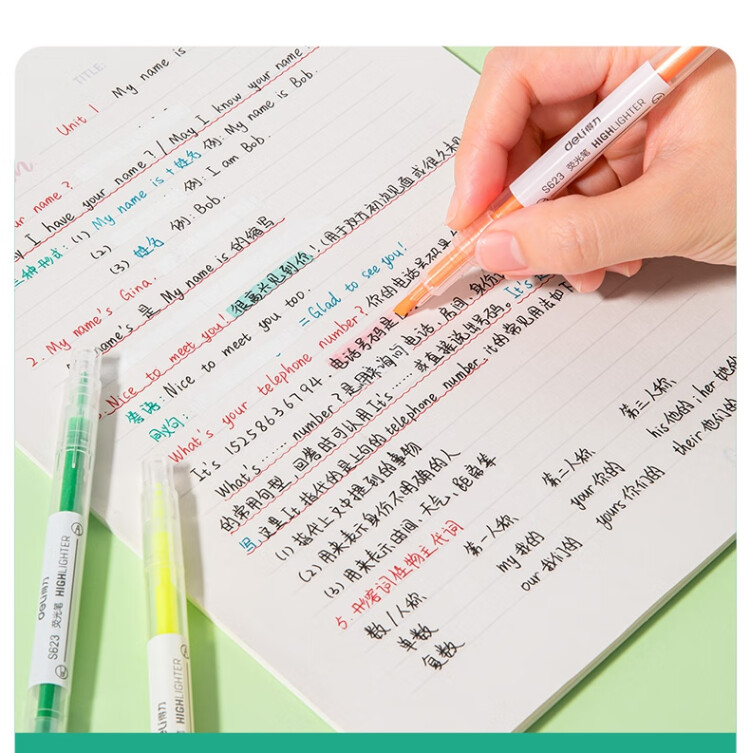 TITLE:
Unit 1 My name is
name? / May I know your name
I have your name? My name is Bob.
ur name? 例: My name is Bob.
三种形式: (1) My name is + 姓名 例: I am Bob.
(2) 例: Bob.
(3) 姓名
2. My name's Gina.
name's 是 My name is 的缩写
Nice to meet you! 很高兴见到你! (用于双方初次见面或很久未见
答语: Nice to meet you too.
同义句: = Glad to see you!
What's your telephone number? 你的电话号码是
It's 15258636794. 电话号码是
What's …… number? 是用来询问电话, 房间, 身份
的常用句型, 回答时可以用 It's …… 或直接说出号码. It's
写, 这里 It 指代的是上句的 telephone number. it 的常见用法如下
(1) 指代上文中提到的事物
(2) 用来表示身份不明确的人
(3) 用来表示时间, 天气, 距离等
5. 形容词性物主代词
数 / 人称 第一人称 第二人称 第三人称
单数 my 我的 your 你的 his 他的 her 她的
复数 our 我们的 yours 你们的 their 他们的
deli得力
S623 荧光笔 HIGHLIGHTER
deli得力
S623 荧光笔 HIGHLIGHTER
A
deli得力
HIGHLIGHTER